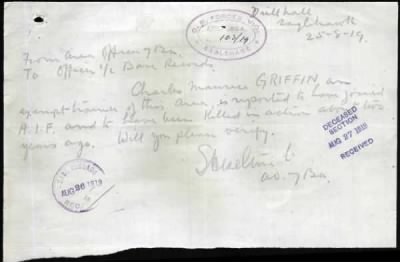 Drill Hall
Eaglehawk
25-8-19.
D.F. FORCES, VIC.
103/19
EAGLEHAWK
From Area Officer 7 Ba.
To Officer i/c Base Records.
Charles Maurice GRIFFIN, an
exempt trainee of this Area, is reported to have joined
A.I.F. and to have been killed in action about two
years ago. Will you please verify.
AO. 7 Ba
DECEASED
SECTION
AUG 27 1919
RECEIVED
AUG 26 1919